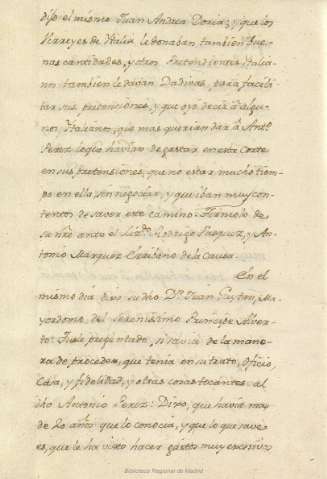 dijo el mismo Juan Andrea Dorias, y que los
Virreyes de Italia le donaban tambien bue-
nas cantidades, y otros Pretendientes Italia-
nos tambien le daban Dadivas, para facili-
tar sus pretenciones, y que oyó decir á algu-
nos Italianos, que mas querian dar á Antº
Perez lo que habian de gastar en esta Corte
en sus pretensiones, que no estar mucho tiem-
po en ella sin negociar, y que iban muy con-
tentos de saver este camino. Firmolo de
su nre ante el Lizdo Rodrigo Vazquez, y An-
tonio Marquez Escribano de la Causa.
En el
mismo dia diez su dho Dn Juan Gaytan, Ma-
yordomo del Serenissimo Principe Alver-
to: Fuele preguntado, si savia de la mane-
ra de proceder, que tenia en su trato, oficio,
Casa, y fidelidad, y otras cosas tocantes al
dho Antonio Perez: Dijo, que havia mas
de 20 años que lo conocia, y que lo que save
es, que le ha visto hacer gastos muy excesivos
Biblioteca Regional de Madrid